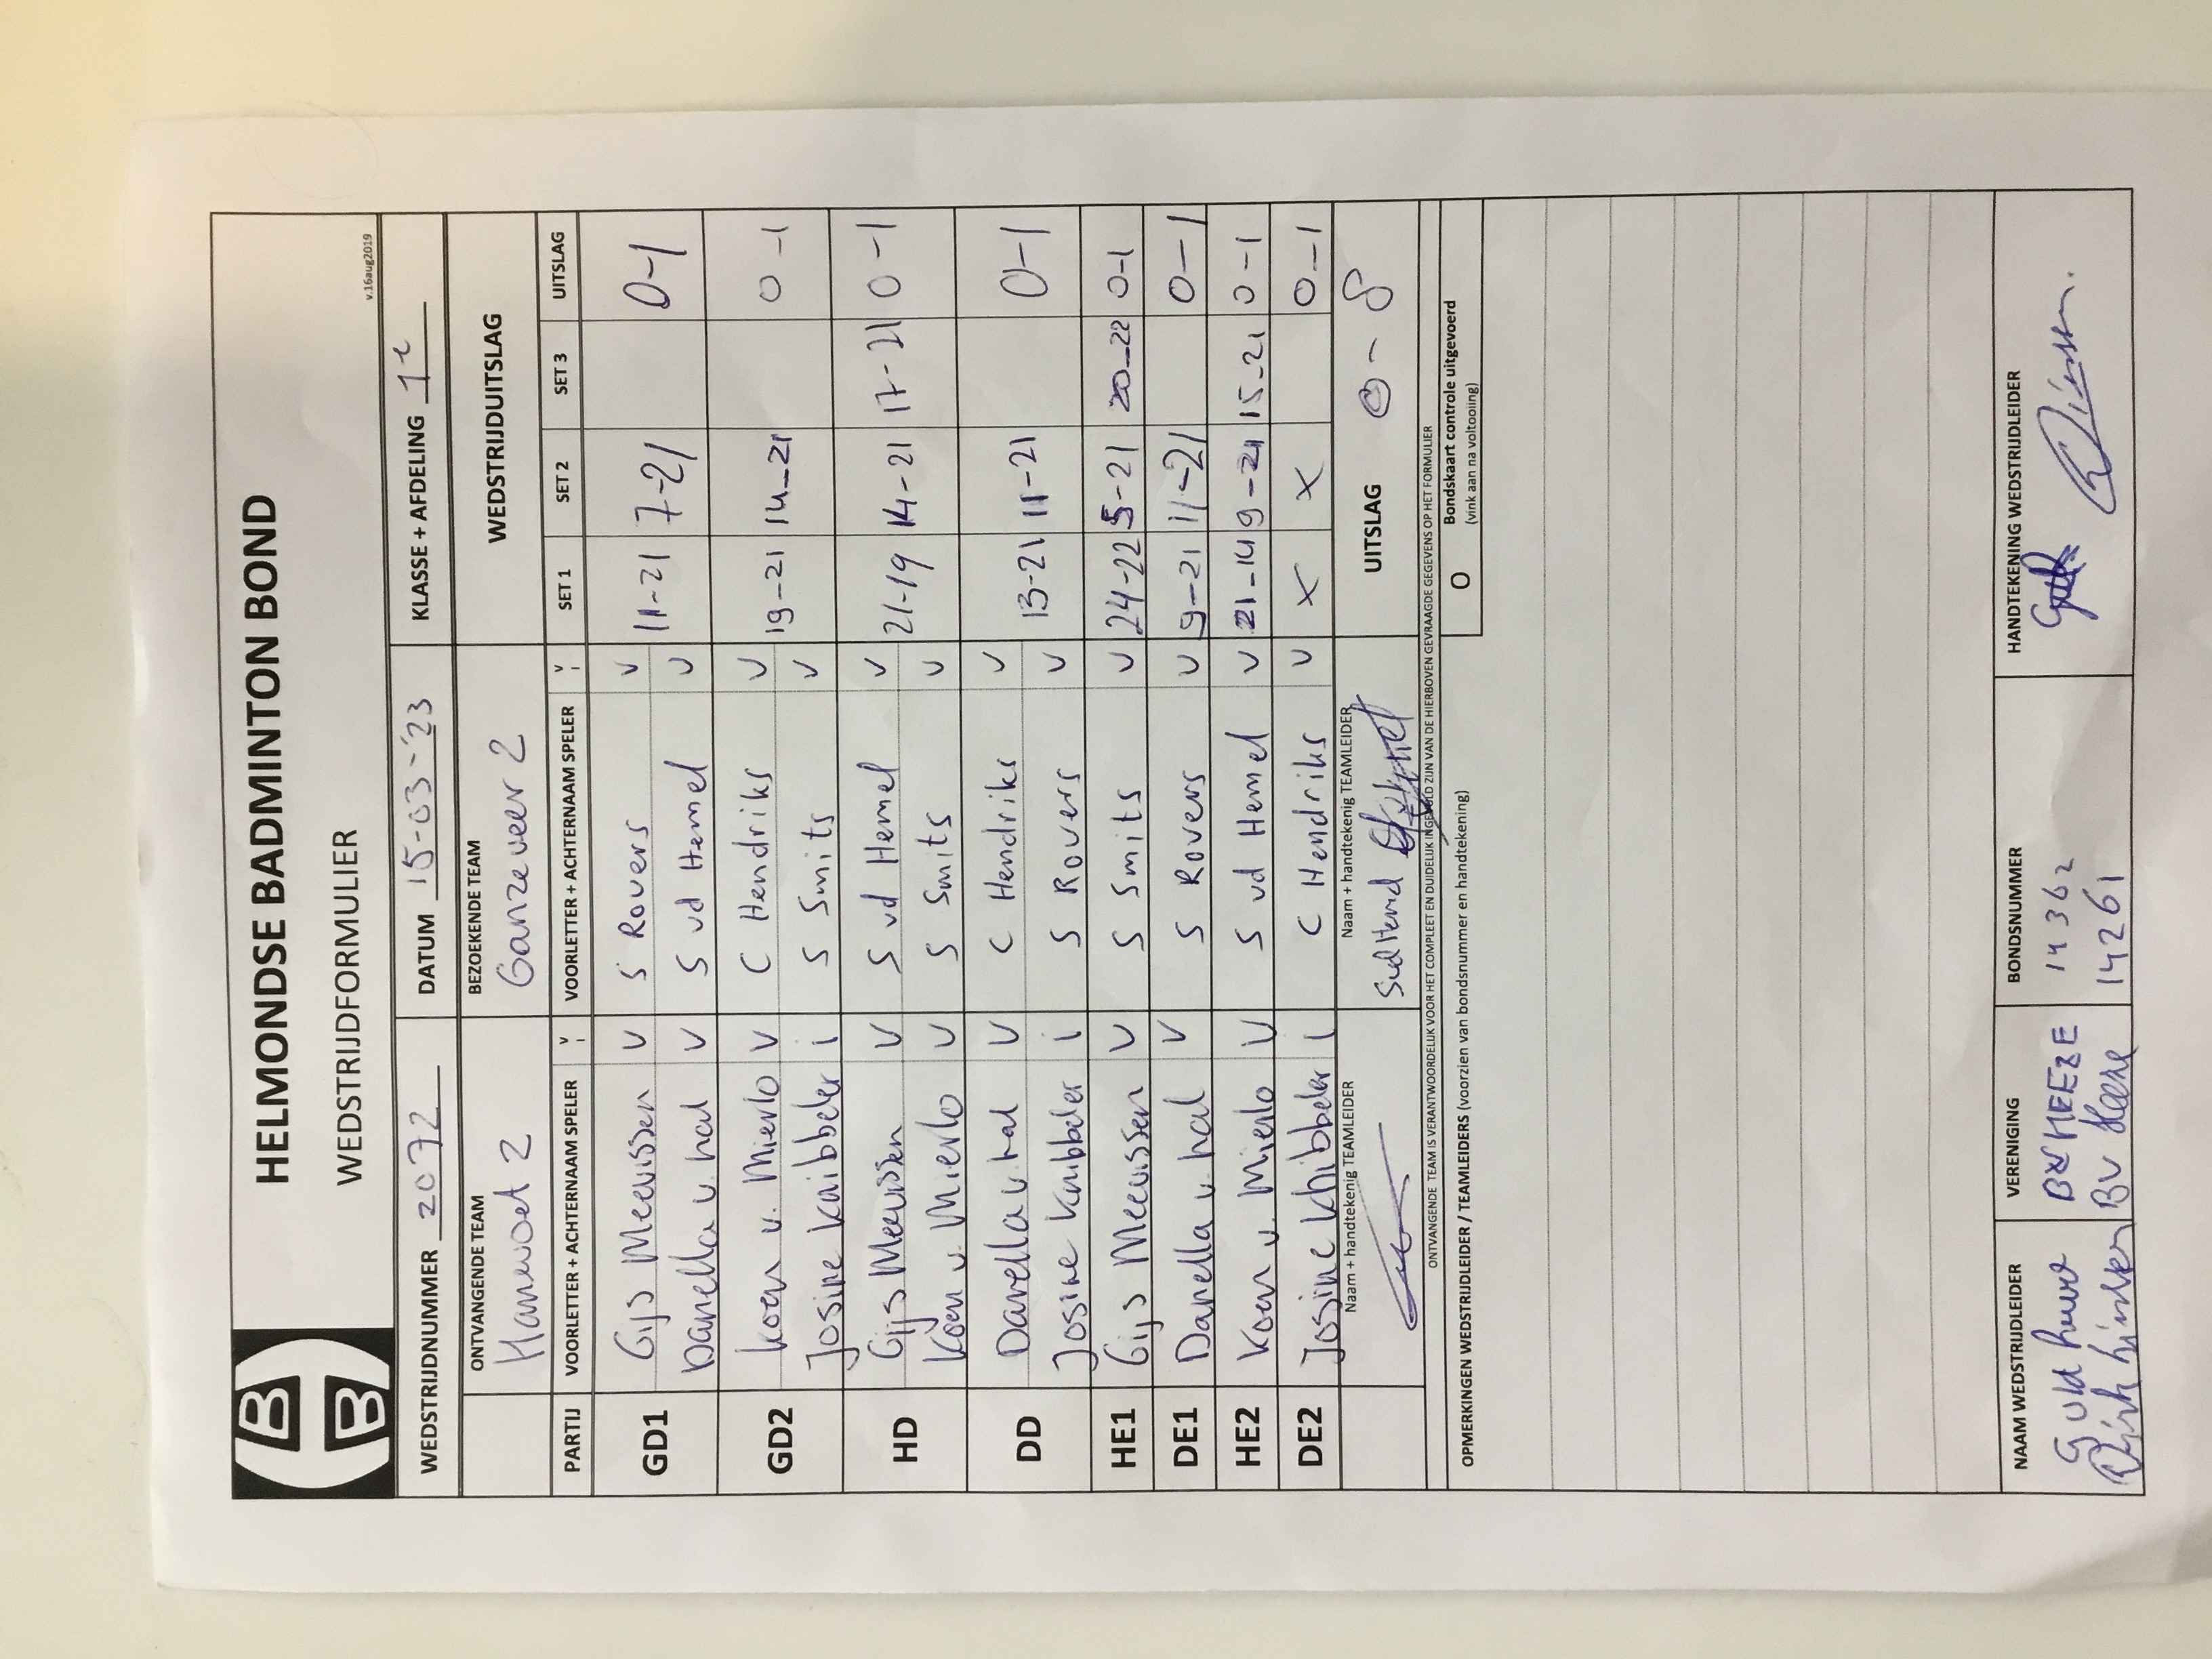 HELMONDSE BADMINTON BOND
WEDSTRIJDFORMULIER
v.16aug2019
WEDSTRIJDNUMMER 2072 DATUM 15-03-'23 KLASSE + AFDELING 1e
ONTVANGENDE TEAM BEZOEKENDE TEAM WEDSTRIJDUITSLAG
Hamwoet 2 Ganzeveer 2
PARTIJ VOORLETTER + ACHTERNAAM SPELER V I VOORLETTER + ACHTERNAAM SPELER V I SET 1 SET 2 SET 3 UITSLAG
GD1 Gijs Meeuissen V S Rovers V 11-21 7-21 0-1
Danella v. hal V S vd Hemel V
GD2 Koen v. Mierlo V C Hendriks V 19-21 14-21 0-1
Josine Knibbeler i S Smits V
HD Gijs Meeuissen V S vd Hemel V 21-19 14-21 17-21 0-1
Koen v. Mierlo V S Smits V
DD Danella v. hal V C Hendriks V 13-21 11-21 0-1
Josine Knibbeler i S Rovers V
HE1 Gijs Meeuissen V S Smits V 24-22 5-21 20-22 0-1
DE1 Danella v. hal V S Rovers V 9-21 11-21 0-1
HE2 Koen v. Mierlo V S vd Hemel V 21-14 9-21 15-21 0-1
DE2 Josine Knibbeler i C Hendriks V X X 0-1
Naam + handtekenig TEAMLEIDER Naam + handtekenig TEAMLEIDER UITSLAG 0-8
SvdHemel
ONTVANGENDE TEAM IS VERANTWOORDELIJK VOOR HET COMPLEET EN DUIDELIJK INGEVULD ZIJN VAN DE HIERBOVEN GEVRAAGDE GEGEVENS OP HET FORMULIER
OPMERKINGEN WEDSTRIJDLEIDER / TEAMLEIDERS (voorzien van bondsnummer en handtekening) O Bondskaart controle uitgevoerd
(vink aan na voltooiing)
NAAM WEDSTRIJDLEIDER VERENIGING BONDSNUMMER HANDTEKENING WEDSTRIJDLEIDER
BV HEEZE 14362
BV Heeze 14261